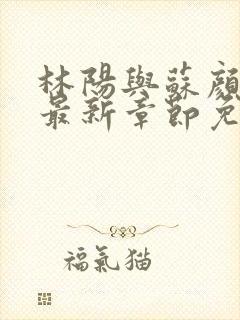 林陽與蘇顏
最新章節免
福氣猫